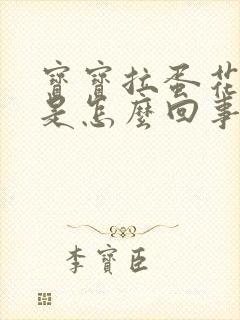 寶寶拉蛋花
是怎麼回事
李寶臣